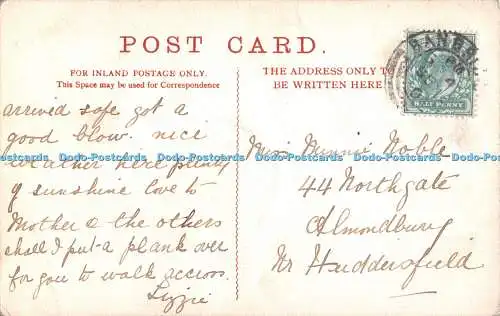 POST CARD.
FOR INLAND POSTAGE ONLY.
This Space may be used for Correspondence
THE ADDRESS ONLY TO
BE WRITTEN HERE
HALF PENNY
arrived safe got a
good blow. nice
weather here plenty
of sunshine love to
Mother & the others
shall I put a plank over
for you to walk accross.
Lizzie
Miss Minnie Noble
44 Northgate
Almondbury
Nr Huddersfield
Dodo-Postcards Dodo-Postcards Dodo-Postcards Dodo-Postcards Dodo-Postcards